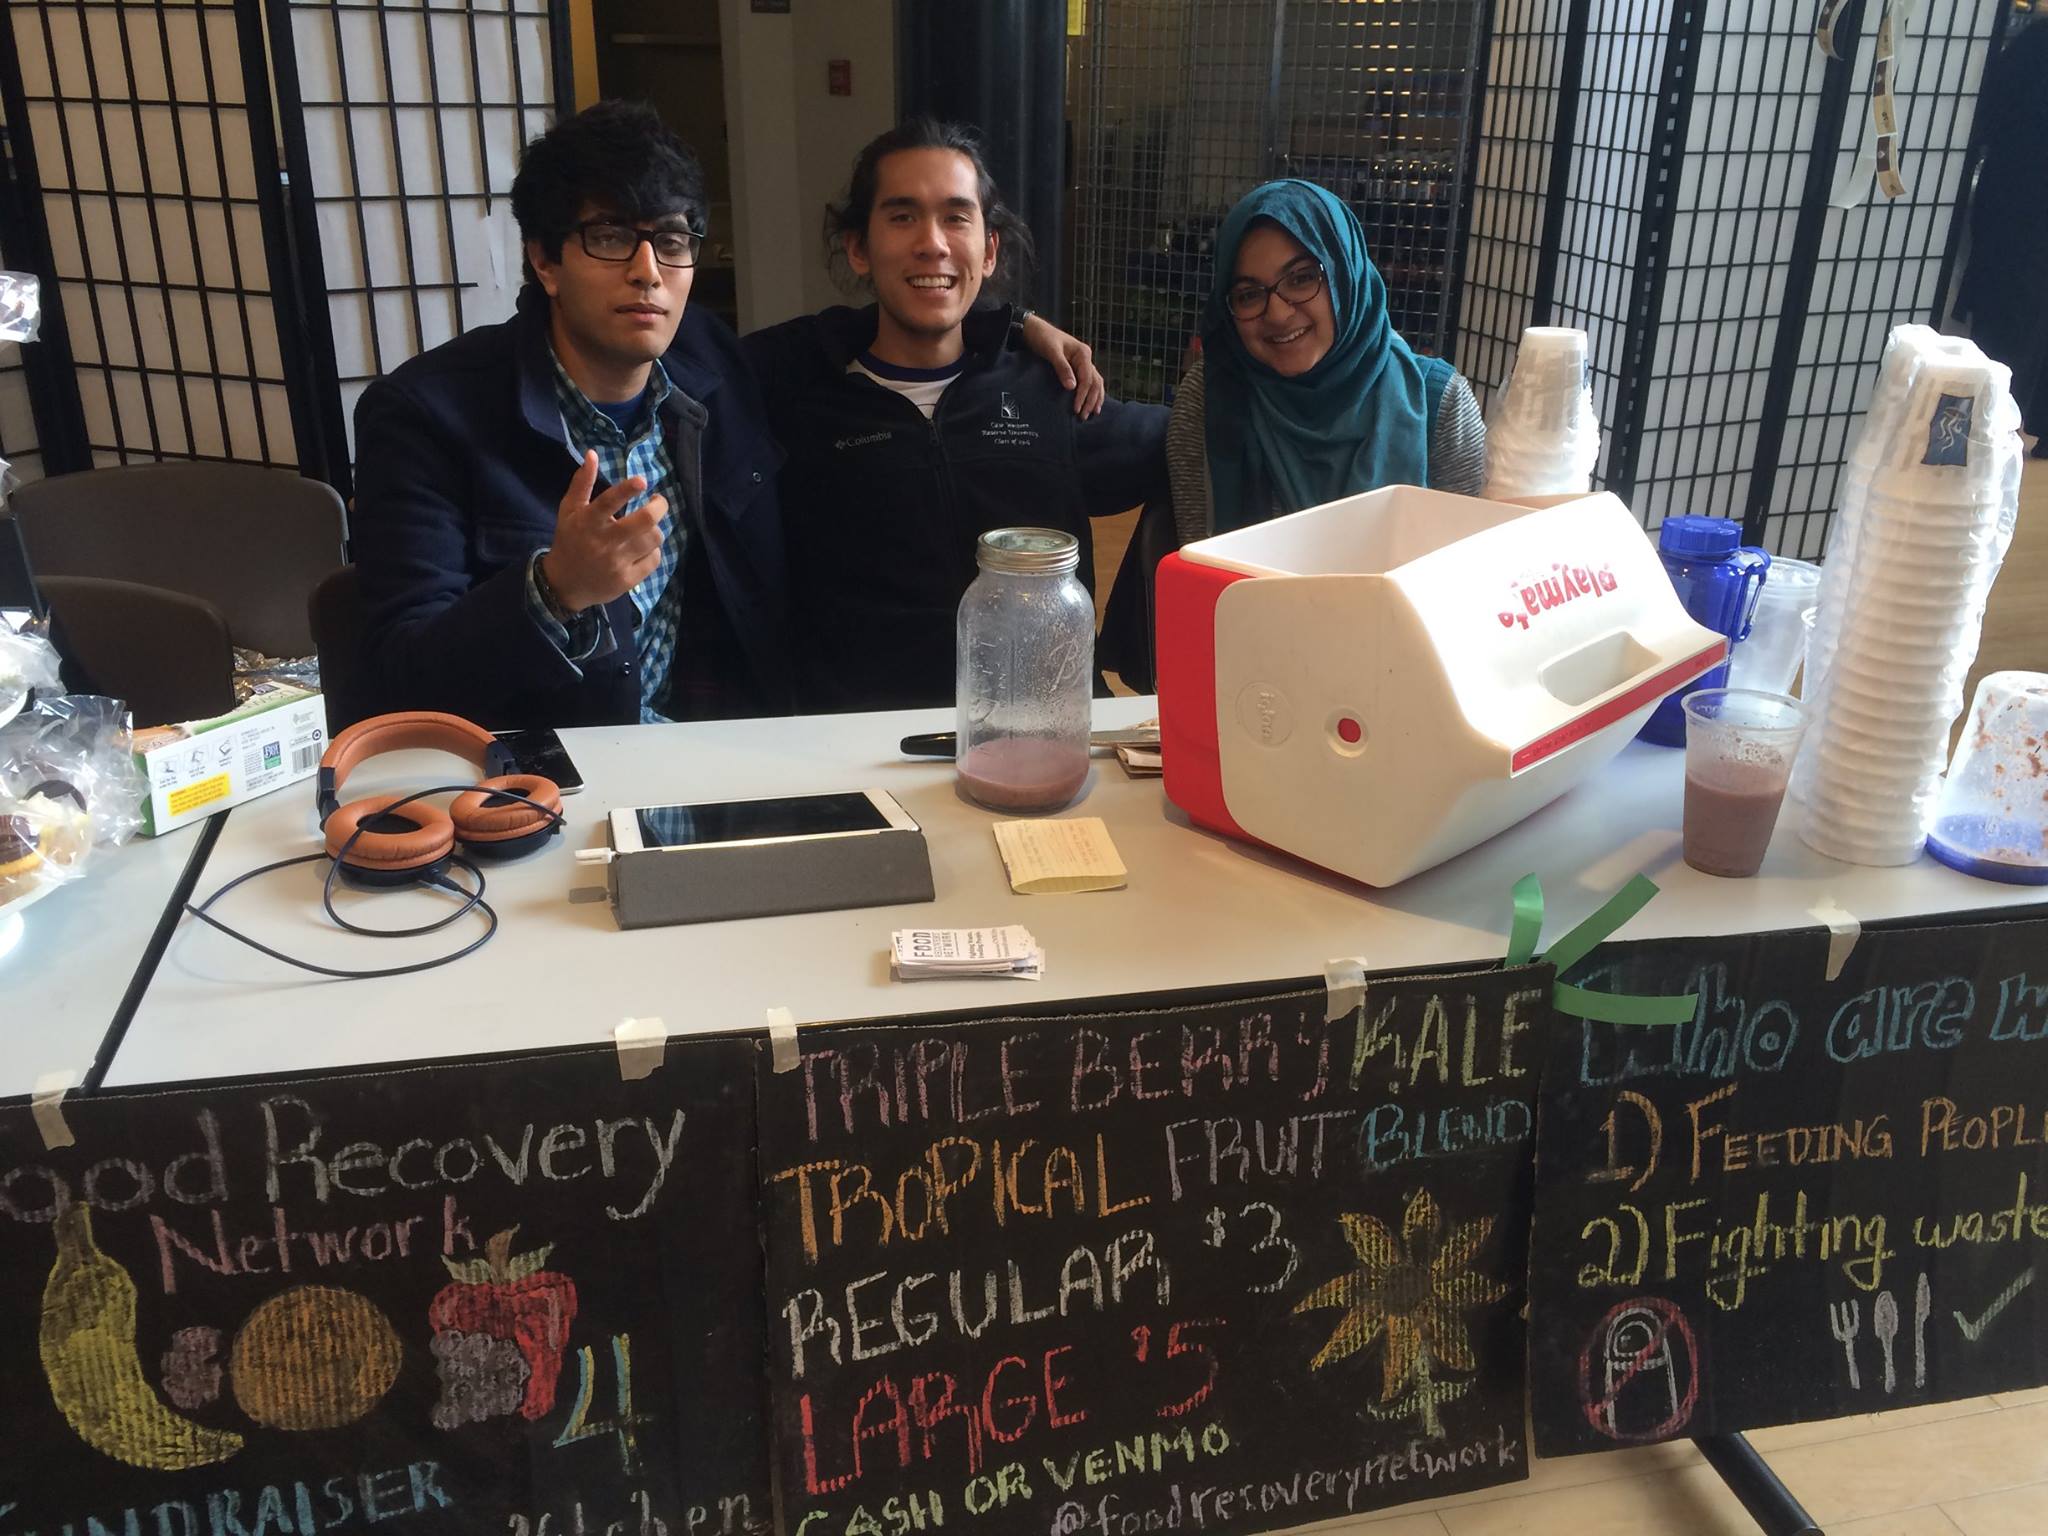 Columbia
Case Western
Reserve University
Playmate
igloo
Ball
FOOD
RECOVERY
NETWORK
Fighting Waste.
Feeding People.
ood Recovery
Network
4
UNDRAISER
Kitchen
TRIPLE BERRY KALE
TROPICAL FRUIT BLEND
REGULAR $3
LARGE $5
CASH OR VENMO
@foodrecoverynetwork
Who are w
1) FEEDING PEOPL
2) Fighting waste